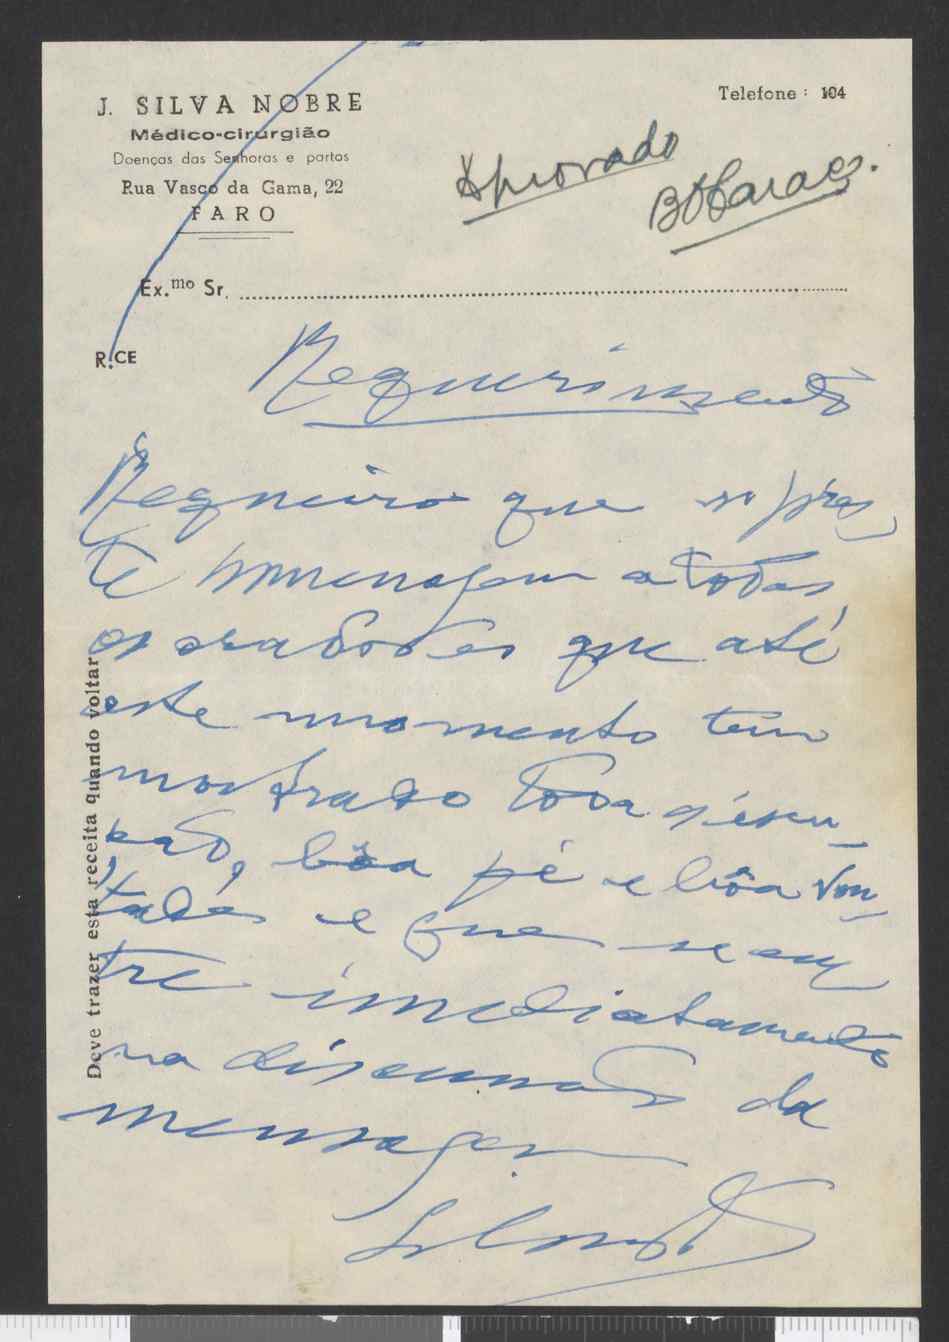 J. SILVA NOBRE
Médico-cirurgião
Doenças das Senhoras e partos
Rua Vasco da Gama, 22
FARO
Telefone: 104
Aprovado
Ex.mo Sr.
R.CE
Requerimento
Requeiro que se pres
te homenagem a todos
os oradores que até
este momento tem
mostrado toda
bôa fé e bôa von
tade e que se en
tre imediatamente
na discussão da
mensagem
Deve trazer esta receita quando voltar